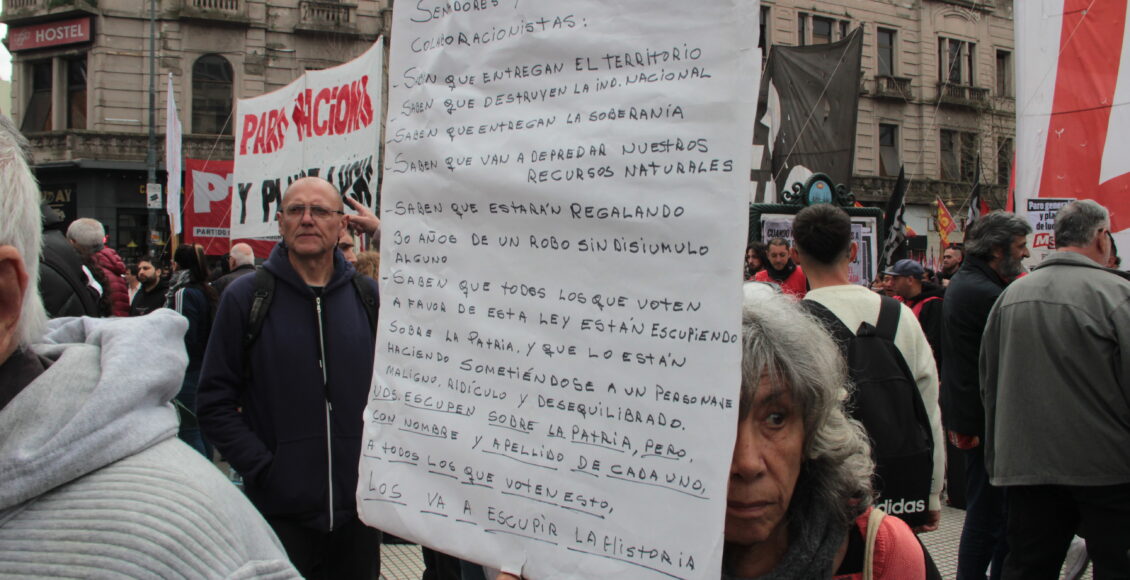 HOSTEL
PARO NACIONAL
Y PLAN DE LUCHA
SENADORES Y
COLABORACIONISTAS:
-SABEN QUE ENTREGAN EL TERRITORIO
-SABEN QUE DESTRUYEN LA IND. NACIONAL
-SABEN QUE ENTREGAN LA SOBERANÍA
-SABEN QUE VAN A DEPREDAR NUESTROS
RECURSOS NATURALES
-SABEN QUE ESTARÁN REGALANDO
30 AÑOS DE UN ROBO SIN DISIUMULO
ALGUNO
-SABEN QUE TODOS LOS QUE VOTEN
A FAVOR DE ESTA LEY ESTÁN ESCUPIENDO
SOBRE LA PATRIA. Y QUE LO ESTÁN
HACIENDO SOMETIÉNDOSE A UN PERSONAJE
MALIGNO, RIDÍCULO Y DESEQUILIBRADO.
UDS. ESCUPEN SOBRE LA PATRIA, PERO,
CON NOMBRE Y APELLIDO DE CADA UNO,
A TODOS LOS QUE VOTEN ESTO,
LOS VA A ESCUPIR LA HISTORIA
Paro general
MST
adidas